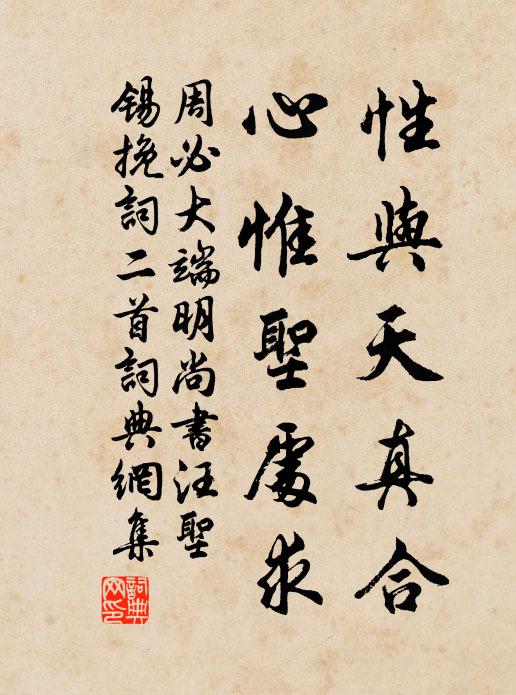 性與天真合
心惟聖處求
周必大端明尚書汪聖
錫挽詞二首詞典網集
詞典
網印